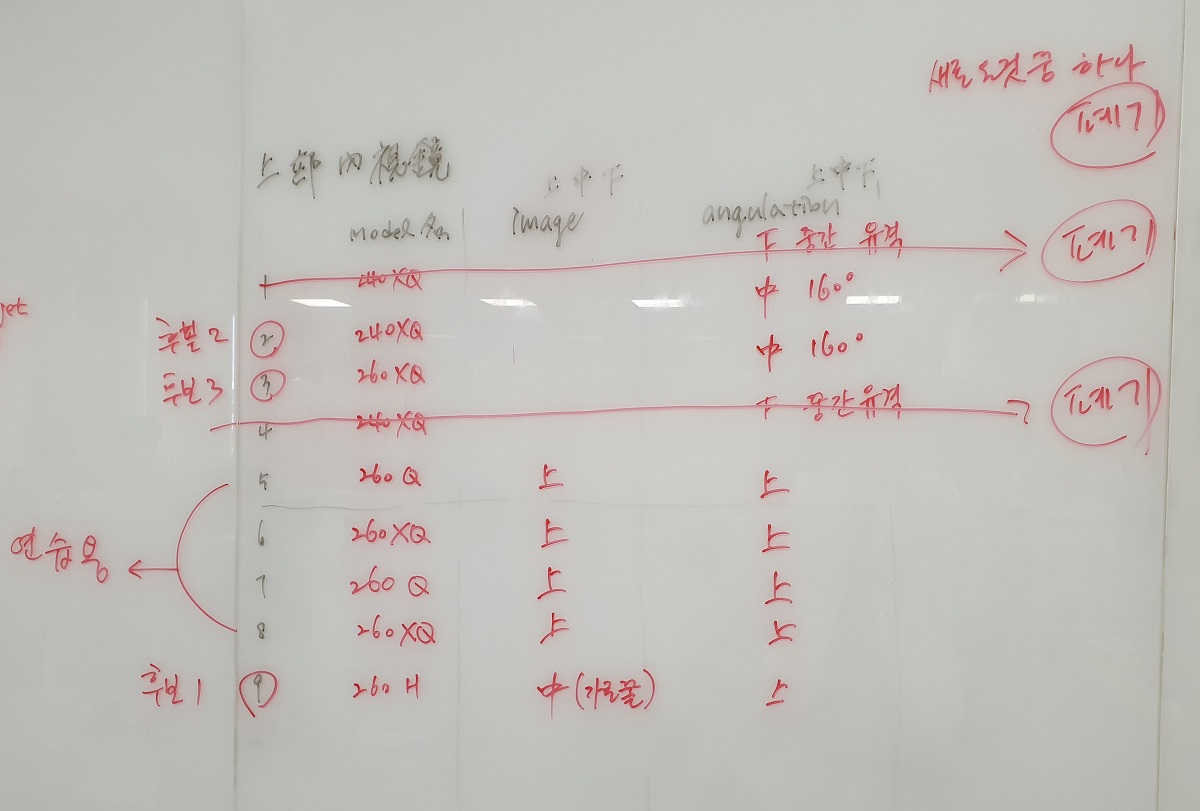 새로 온것 중 하나
폐기
上部 內視鏡
上中下
上中下
model 名
image
angulation
1 240XQ 下 중간 유격 폐기
get
후보2 2 240XQ 中 160°
후보3 3 260XQ 中 160°
4 240XQ 下 중간유격 폐기
5 260 Q 上 上
연습용 6 260XQ 上 上
7 260 Q 上 上
8 260XQ 上 上
후보1 9 260 H 中 (가로줄) 上